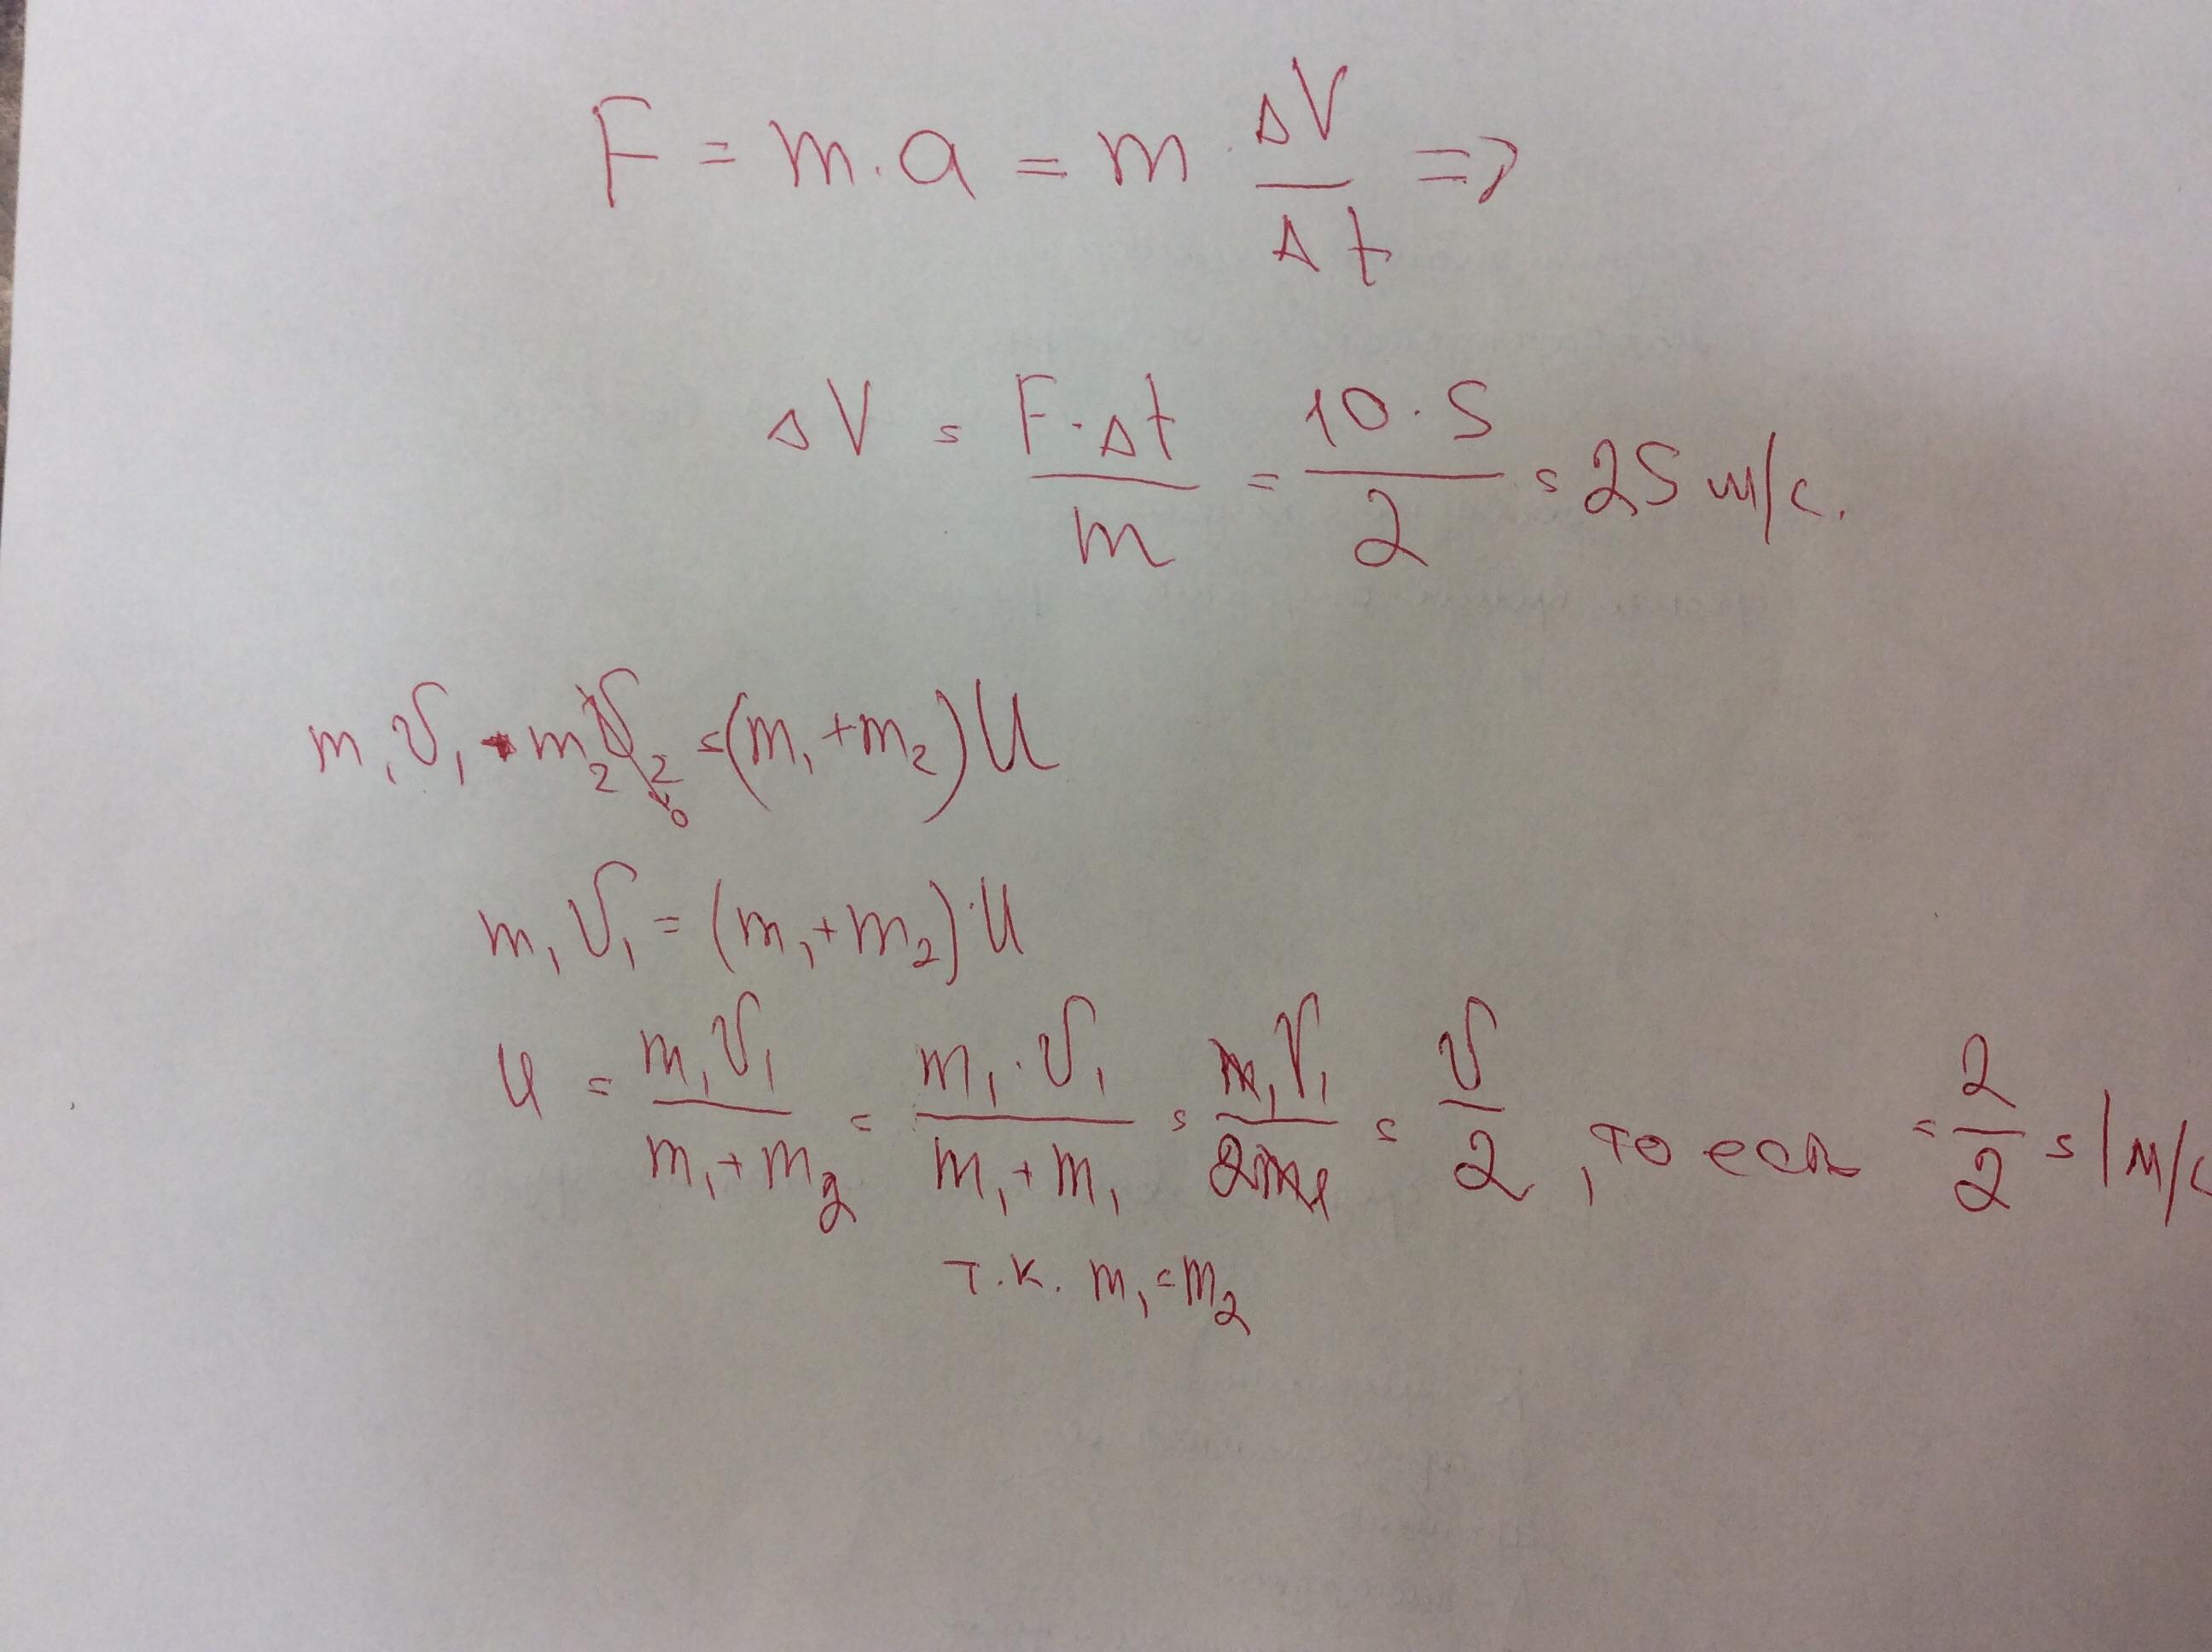 F = m · a = m · ΔV/Δt =>
ΔV = F · Δt / m = 10 · 5 / 2 = 25 м/с.
m₁ V₁ - m₂ V₂ = (m₁ + m₂) U
0
m₁ V₁ = (m₁ + m₂) · U
U = m₁ V₁ / m₁ + m₂ = m₁ · V₁ / m₁ + m₁ = m₁ V₁ / 2m₁ = V / 2 , то есть = 2 / 2 = 1 м/с
т.к. m₁ = m₂